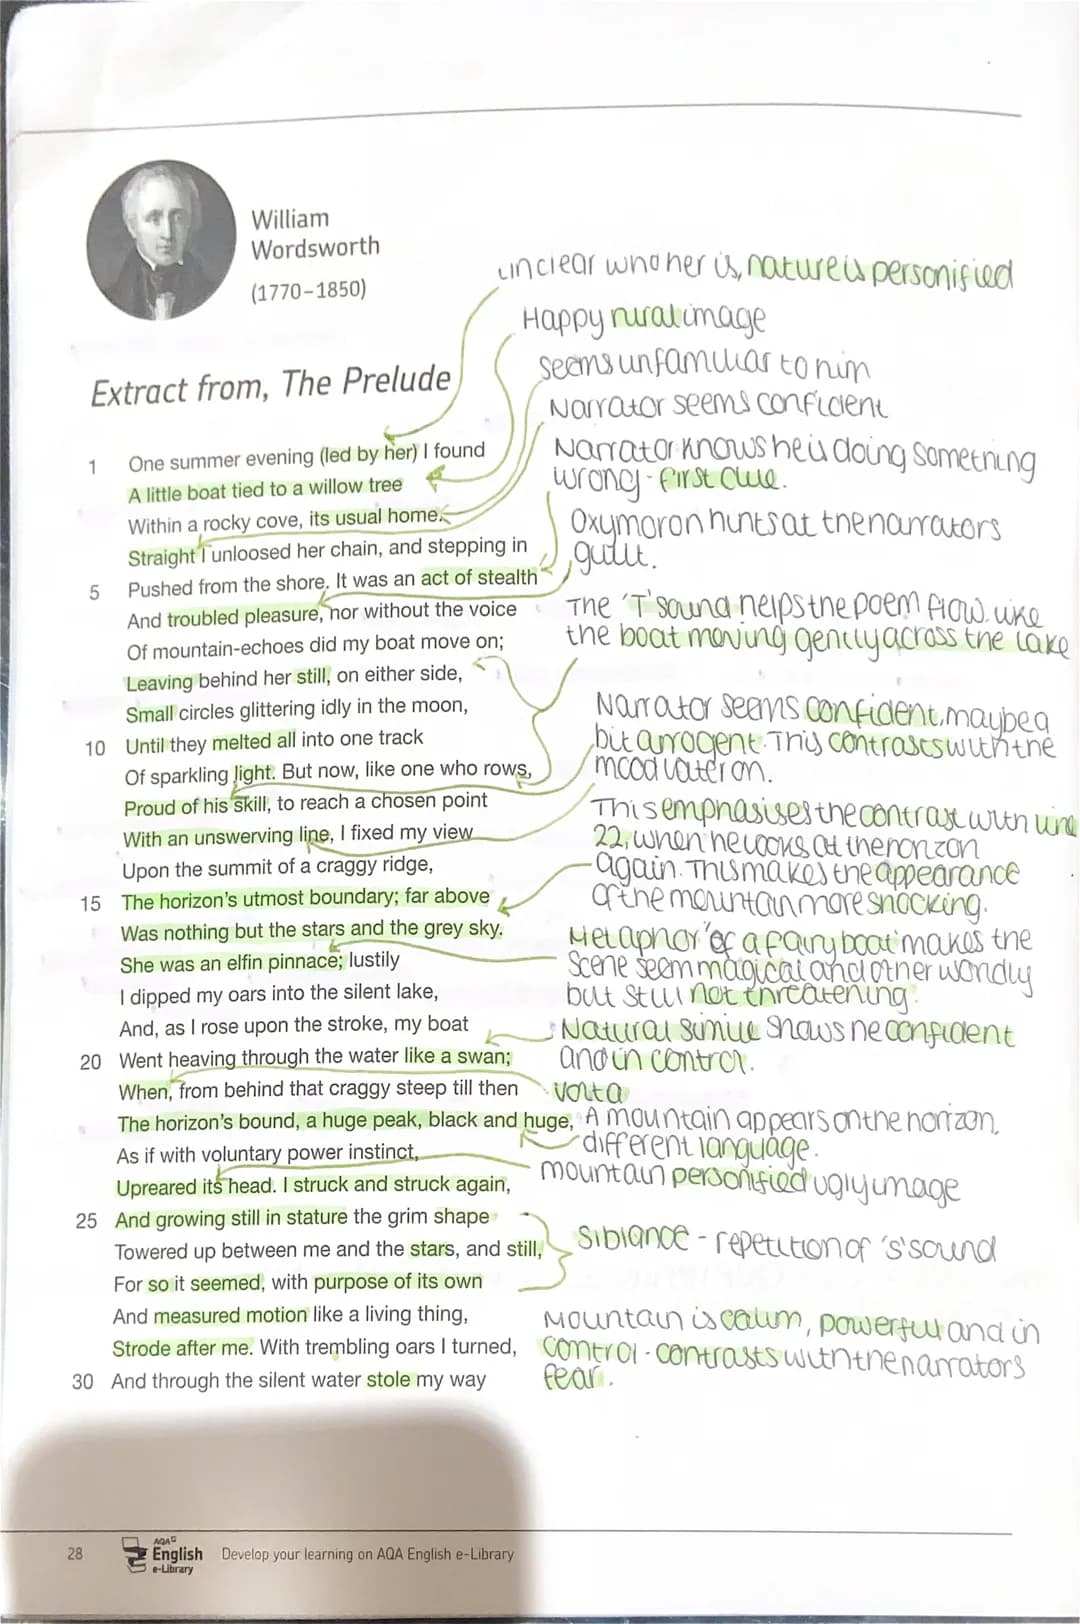 William
Wordsworth
(1770–1850)
unclear who her is, nature is personified
Happy rural image
seems unfamiliar to him
Narrator seems confident
Extract from, The Prelude
Narrator knows he is doing something
wrong - first clue.
Oxymoron hints at the narrators
guilt.
The 'T' sound helps the poem flow. like
the boat moving gently across the lake
Narrator seems confident, maybe a
bit arrogent. This contrasts with the
mood later on.
This emphasises the contrast with line
22, when he looks at the horizon
again. This makes the appearance
of the mountain more shocking.
Metaphor 'of a fairy boat' makes the
scene seem magical and other wordly
but still not threatening.
Natural simile shows he confident
and in control.
volta
A mountain appears on the horizon,
different language.
mountain personified ugly image
Siblance - repetition of 's' sound
Mountain is calm, powerful and in
control - contrasts with the narrators
fear.
1 One summer evening (led by her) I found
A little boat tied to a willow tree
Within a rocky cove, its usual home.
Straight I unloosed her chain, and stepping in
5 Pushed from the shore. It was an act of stealth
And troubled pleasure, nor without the voice
Of mountain-echoes did my boat move on;
Leaving behind her still, on either side,
Small circles glittering idly in the moon,
10 Until they melted all into one track
Of sparkling light. But now, like one who rows,
Proud of his skill, to reach a chosen point
With an unswerving line, I fixed my view
Upon the summit of a craggy ridge,
15 The horizon's utmost boundary; far above
Was nothing but the stars and the grey sky.
She was an elfin pinnace; lustily
I dipped my oars into the silent lake,
And, as I rose upon the stroke, my boat
20 Went heaving through the water like a swan;
When, from behind that craggy steep till then
The horizon's bound, a huge peak, black and huge,
As if with voluntary power instinct,
Upreared its head. I struck and struck again,
25 And growing still in stature the grim shape
Towered up between me and the stars, and still,
For so it seemed, with purpose of its own
And measured motion like a living thing,
Strode after me. With trembling oars I turned,
30 And through the silent water stole my way
28
AQA
English
e-Library
Develop your learning on AQA English e-Library